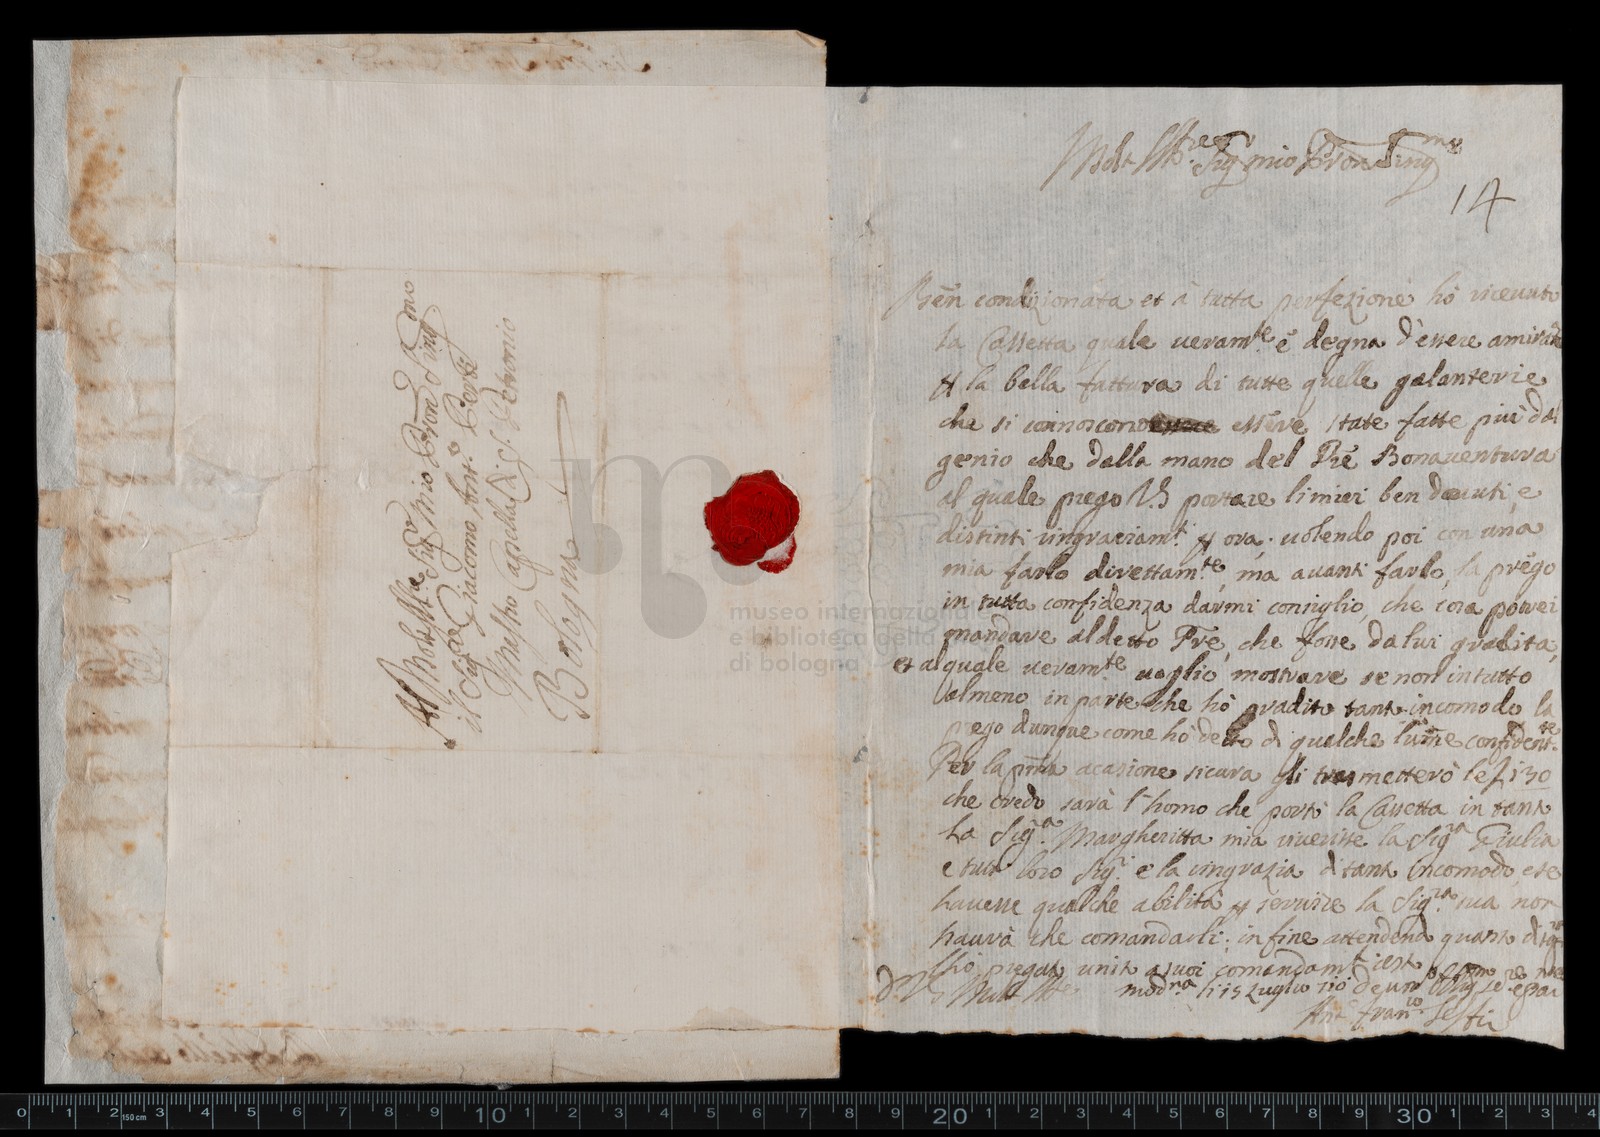 Al Molt Ill.re Sig.r mio Pron Sing.mo
il Sig.r Giacomo Ant.o Perti
Maestro Capella di S. Petronio
Bologna
museo internazionale
e biblioteca della
di bologna
Molt Ill.re Sig.r mio Pron Sing.mo
14
Ben condizionata et à tutta perfezione hò riceuuto
la Cassetta quale ueram.te è degna d'essere amirata
p la bella fattura di tutte quelle galanterie
che si conoscono essere state fatte più dal
genio che dalla mano del Pre Bonauentura
al quale prego V.S. portare li miei ben douuti, e
distinti ringraziam.ti p ora, uolendo poi con una
mia farlo direttam.te, ma auanti farlo, la prego
in tutta confidenza darmi consiglio, che cosa potrei
mandare al detto Pre, che fosse da lui gradita,
et al quale ueram.te uoglio mostrare se non in tutto
almeno in parte che hò gradito tanto incomodo la
prego dunque come hò detto di qualche lume confident.te
Per la pma ocasione sicura gli trasmetterò le £ 130
che credo sarà l'homo che portò la Cassetta in tanto
La Sig.ra Margheritta mia riuerisse la Sig.ra Giulia
e tutti loro Sig.ri e la ringrazia di tanto incomodo, e se
hauesse qualche abilità p seruire la Sig.ra sua, non
haurà che comandarli; in fine attendend quanto di
hò pregato unito a suoi comandam.ti resto
Di V.S. Molt Ill.re Mod.na li 15 Luglio
Ant Fran.co